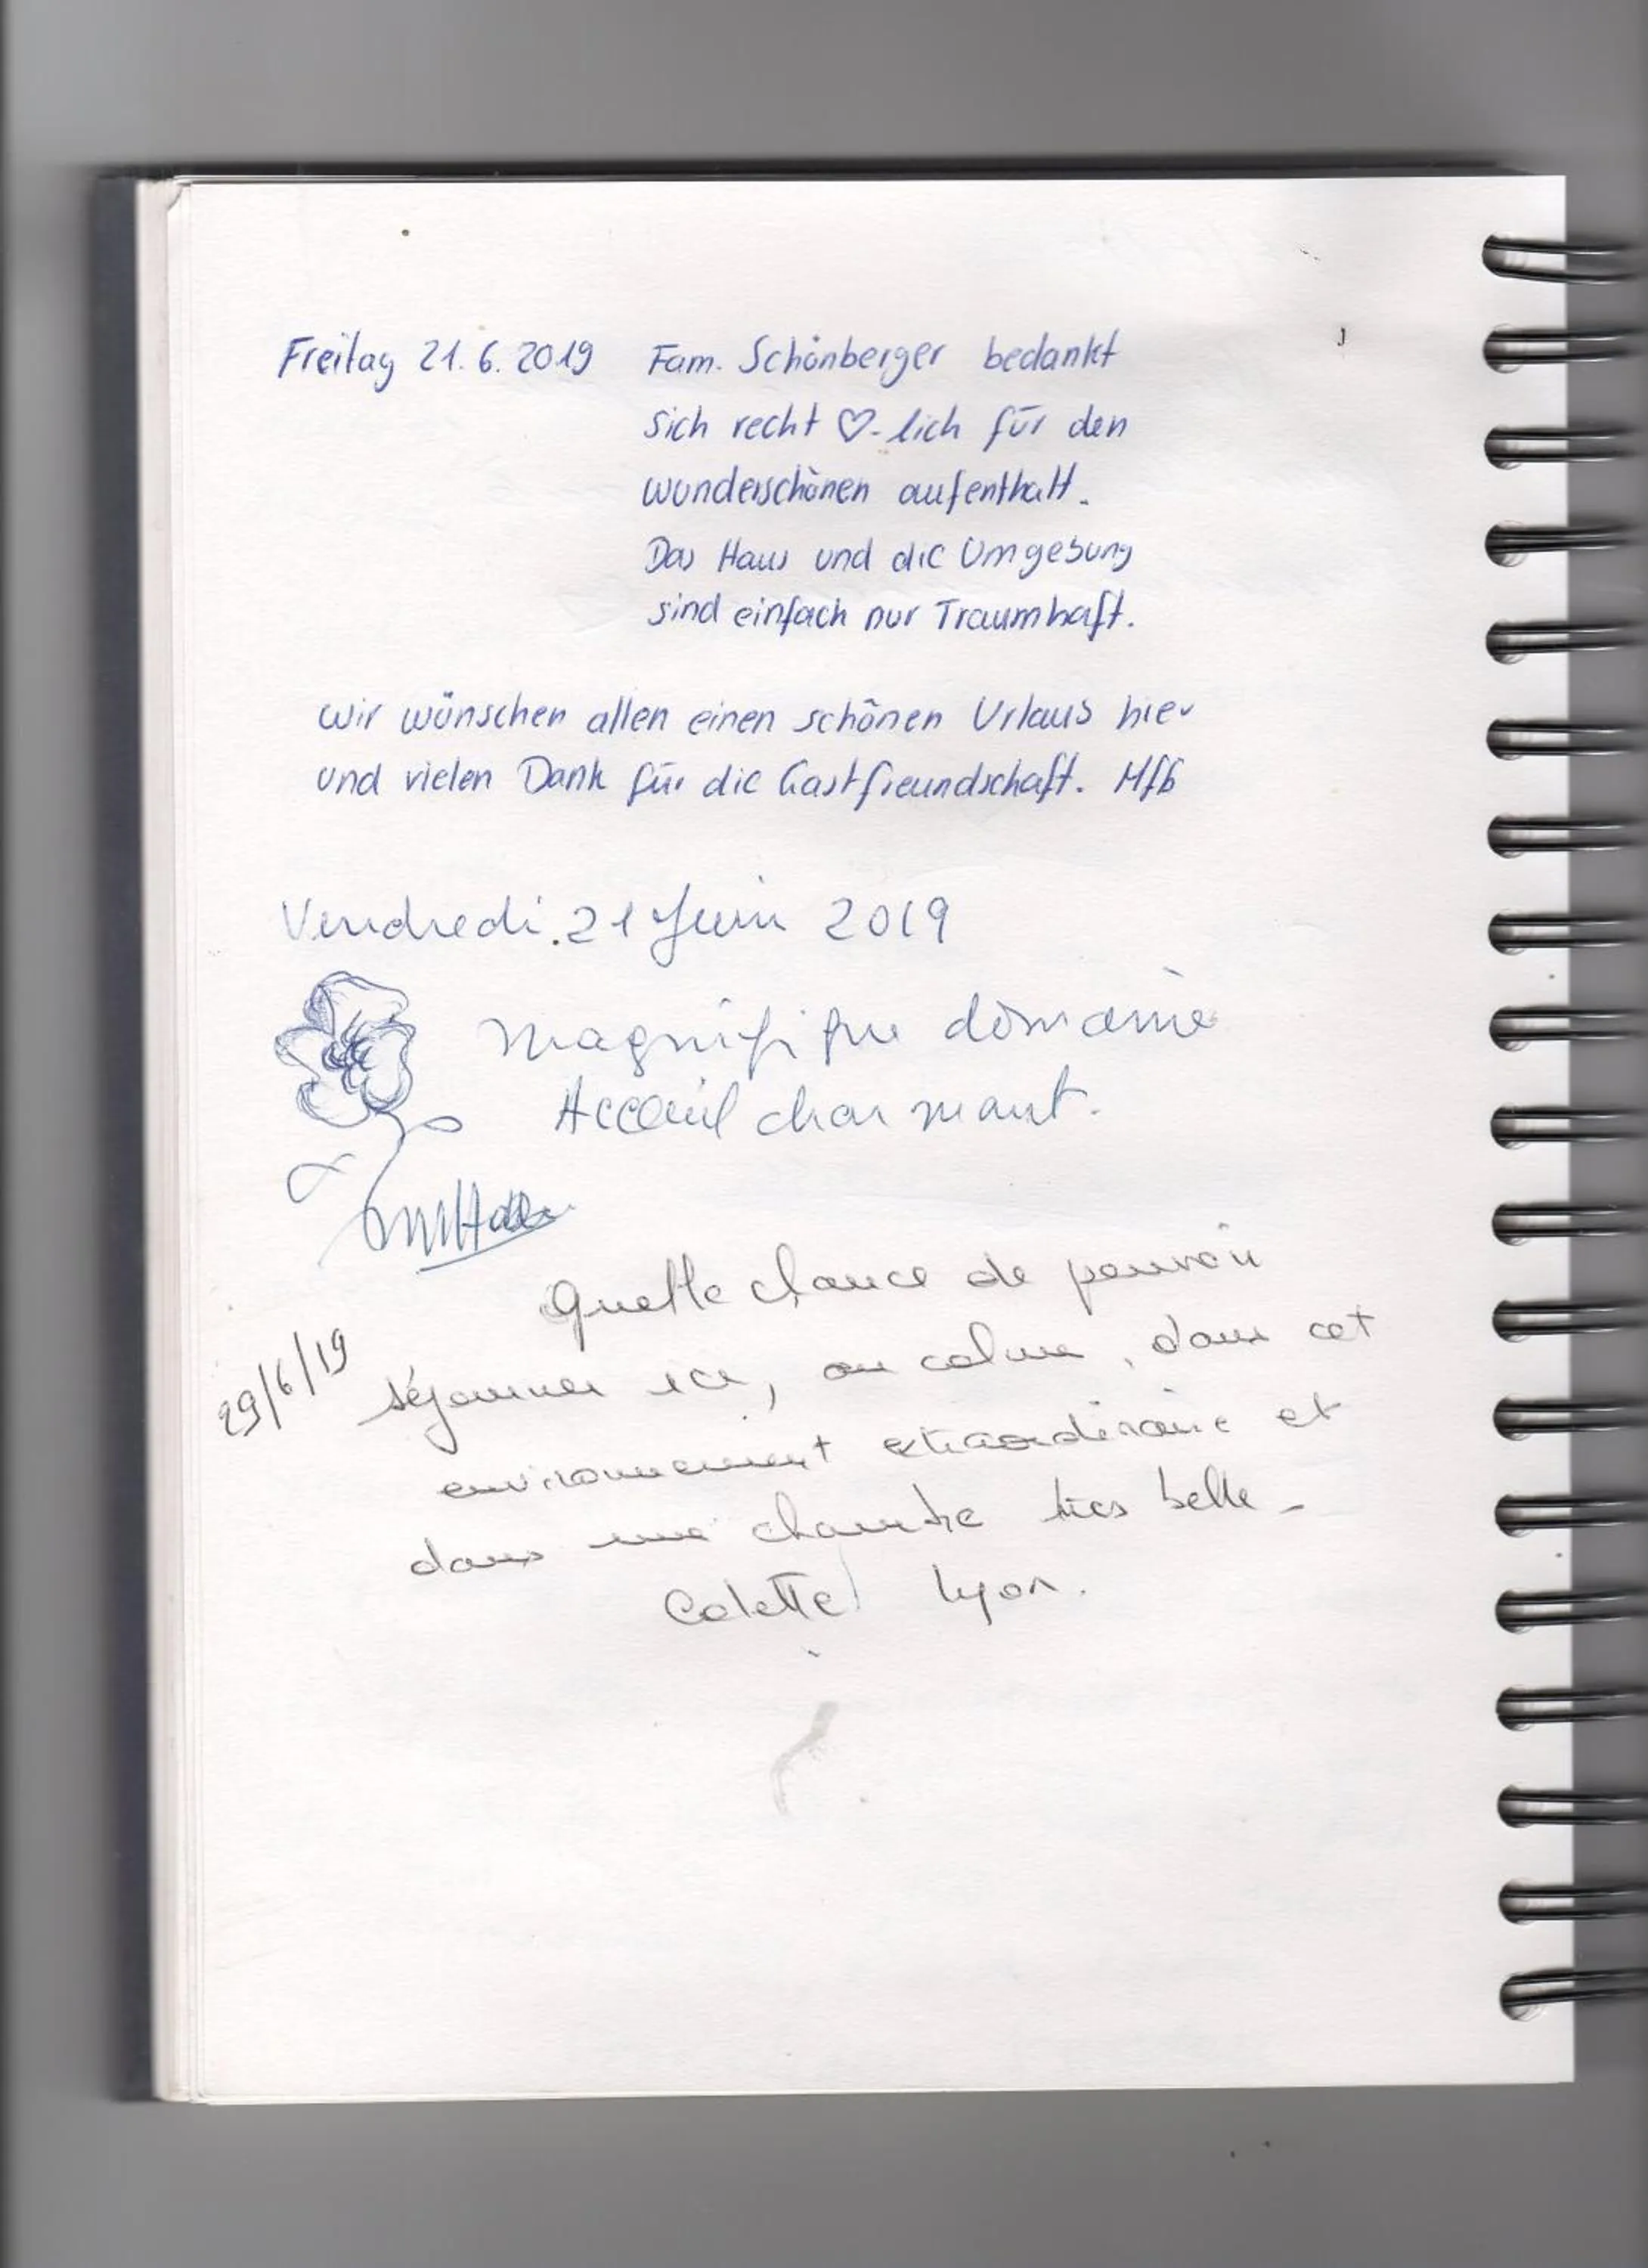 Freitag 21.6.2019 Fam. Schönberger bedankt
sich recht ♡-lich für den
wunderschönen aufenthalt.
Das Haus und die Umgebung
sind einfach nur Traumhaft.
wir wünschen allen einen schönen Urlaub hier
und vielen Dank für die Gastfreundschaft. MfG
Vendredi 21 Juin 2019
Magnifique domaine
Acceuil charmant.
Quelle chance de pouvoir
29/6/19 séjourner ici, au calme, dans cet
environnement extraordinaire et
dans une chambre très belle -
Colette Lyon.